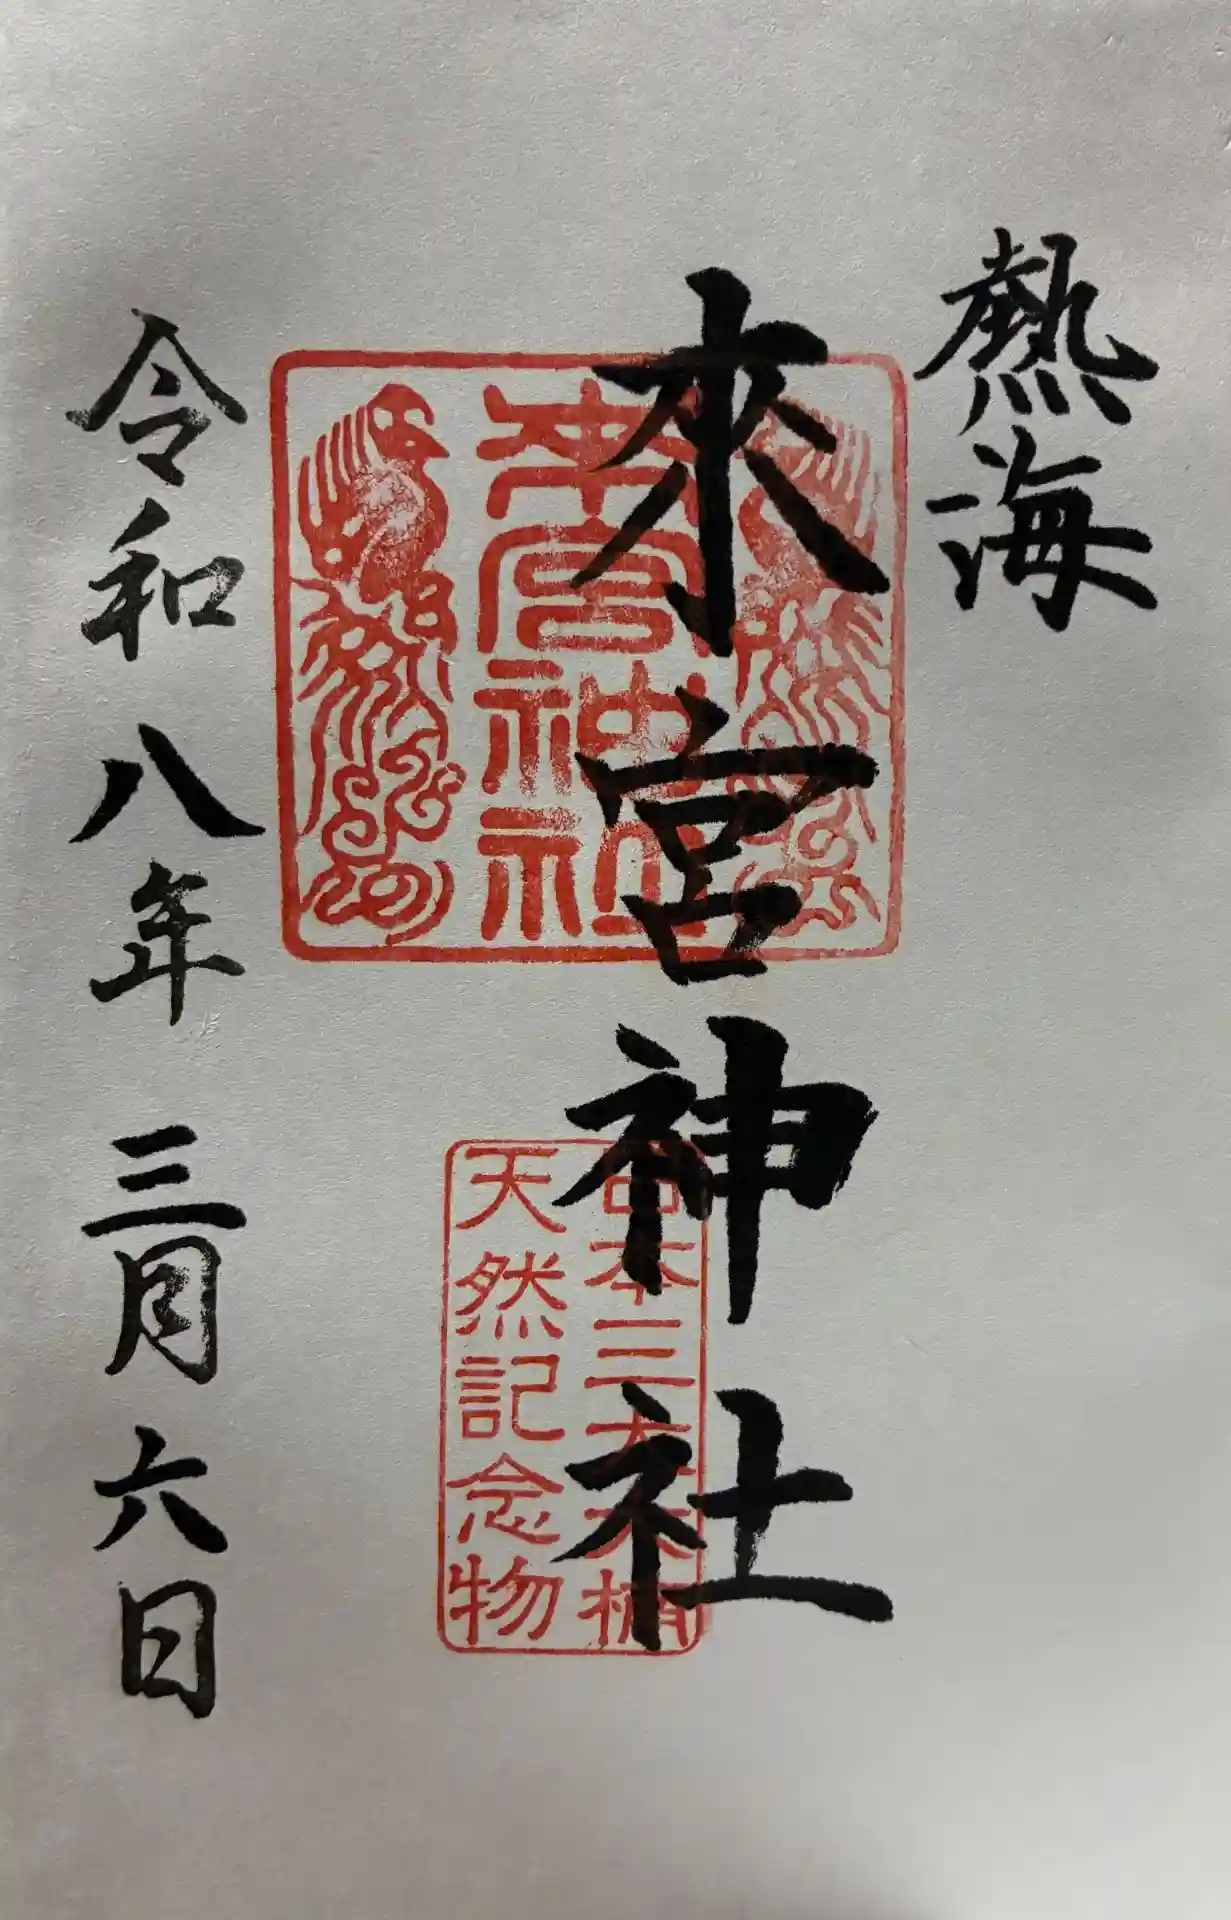 熱海
來宮神社
来宮神社
日本三大大楠
天然記念物
令和八年三月六日